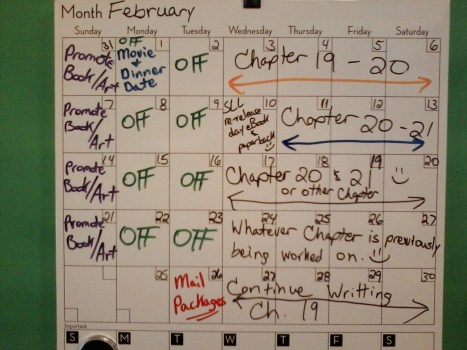 Month February
Sunday Monday Tuesday Wednesday Thursday Friday Saturday
31 1 2 3 4 5 6
Promote Book/Art
OFF Movie + Dinner Date
OFF
Chapter 19 - 20
7 8 9 10 11 12 13
Promote Book/Art
OFF
OFF
SLL re-release day eBook & paperback
Chapter 20 - 21
14 15 16 17 18 19 20
Promote Book/Art
OFF
OFF
Chapter 20 & 21
or other Chapter
21 22 23 24 25 26 27
Promote Book/Art
OFF
OFF
Whatever Chapter is previously
being worked on.
25 26 27 28 29 30
Mail Packages
Continue Writting
Ch. 19
S M T W T F S